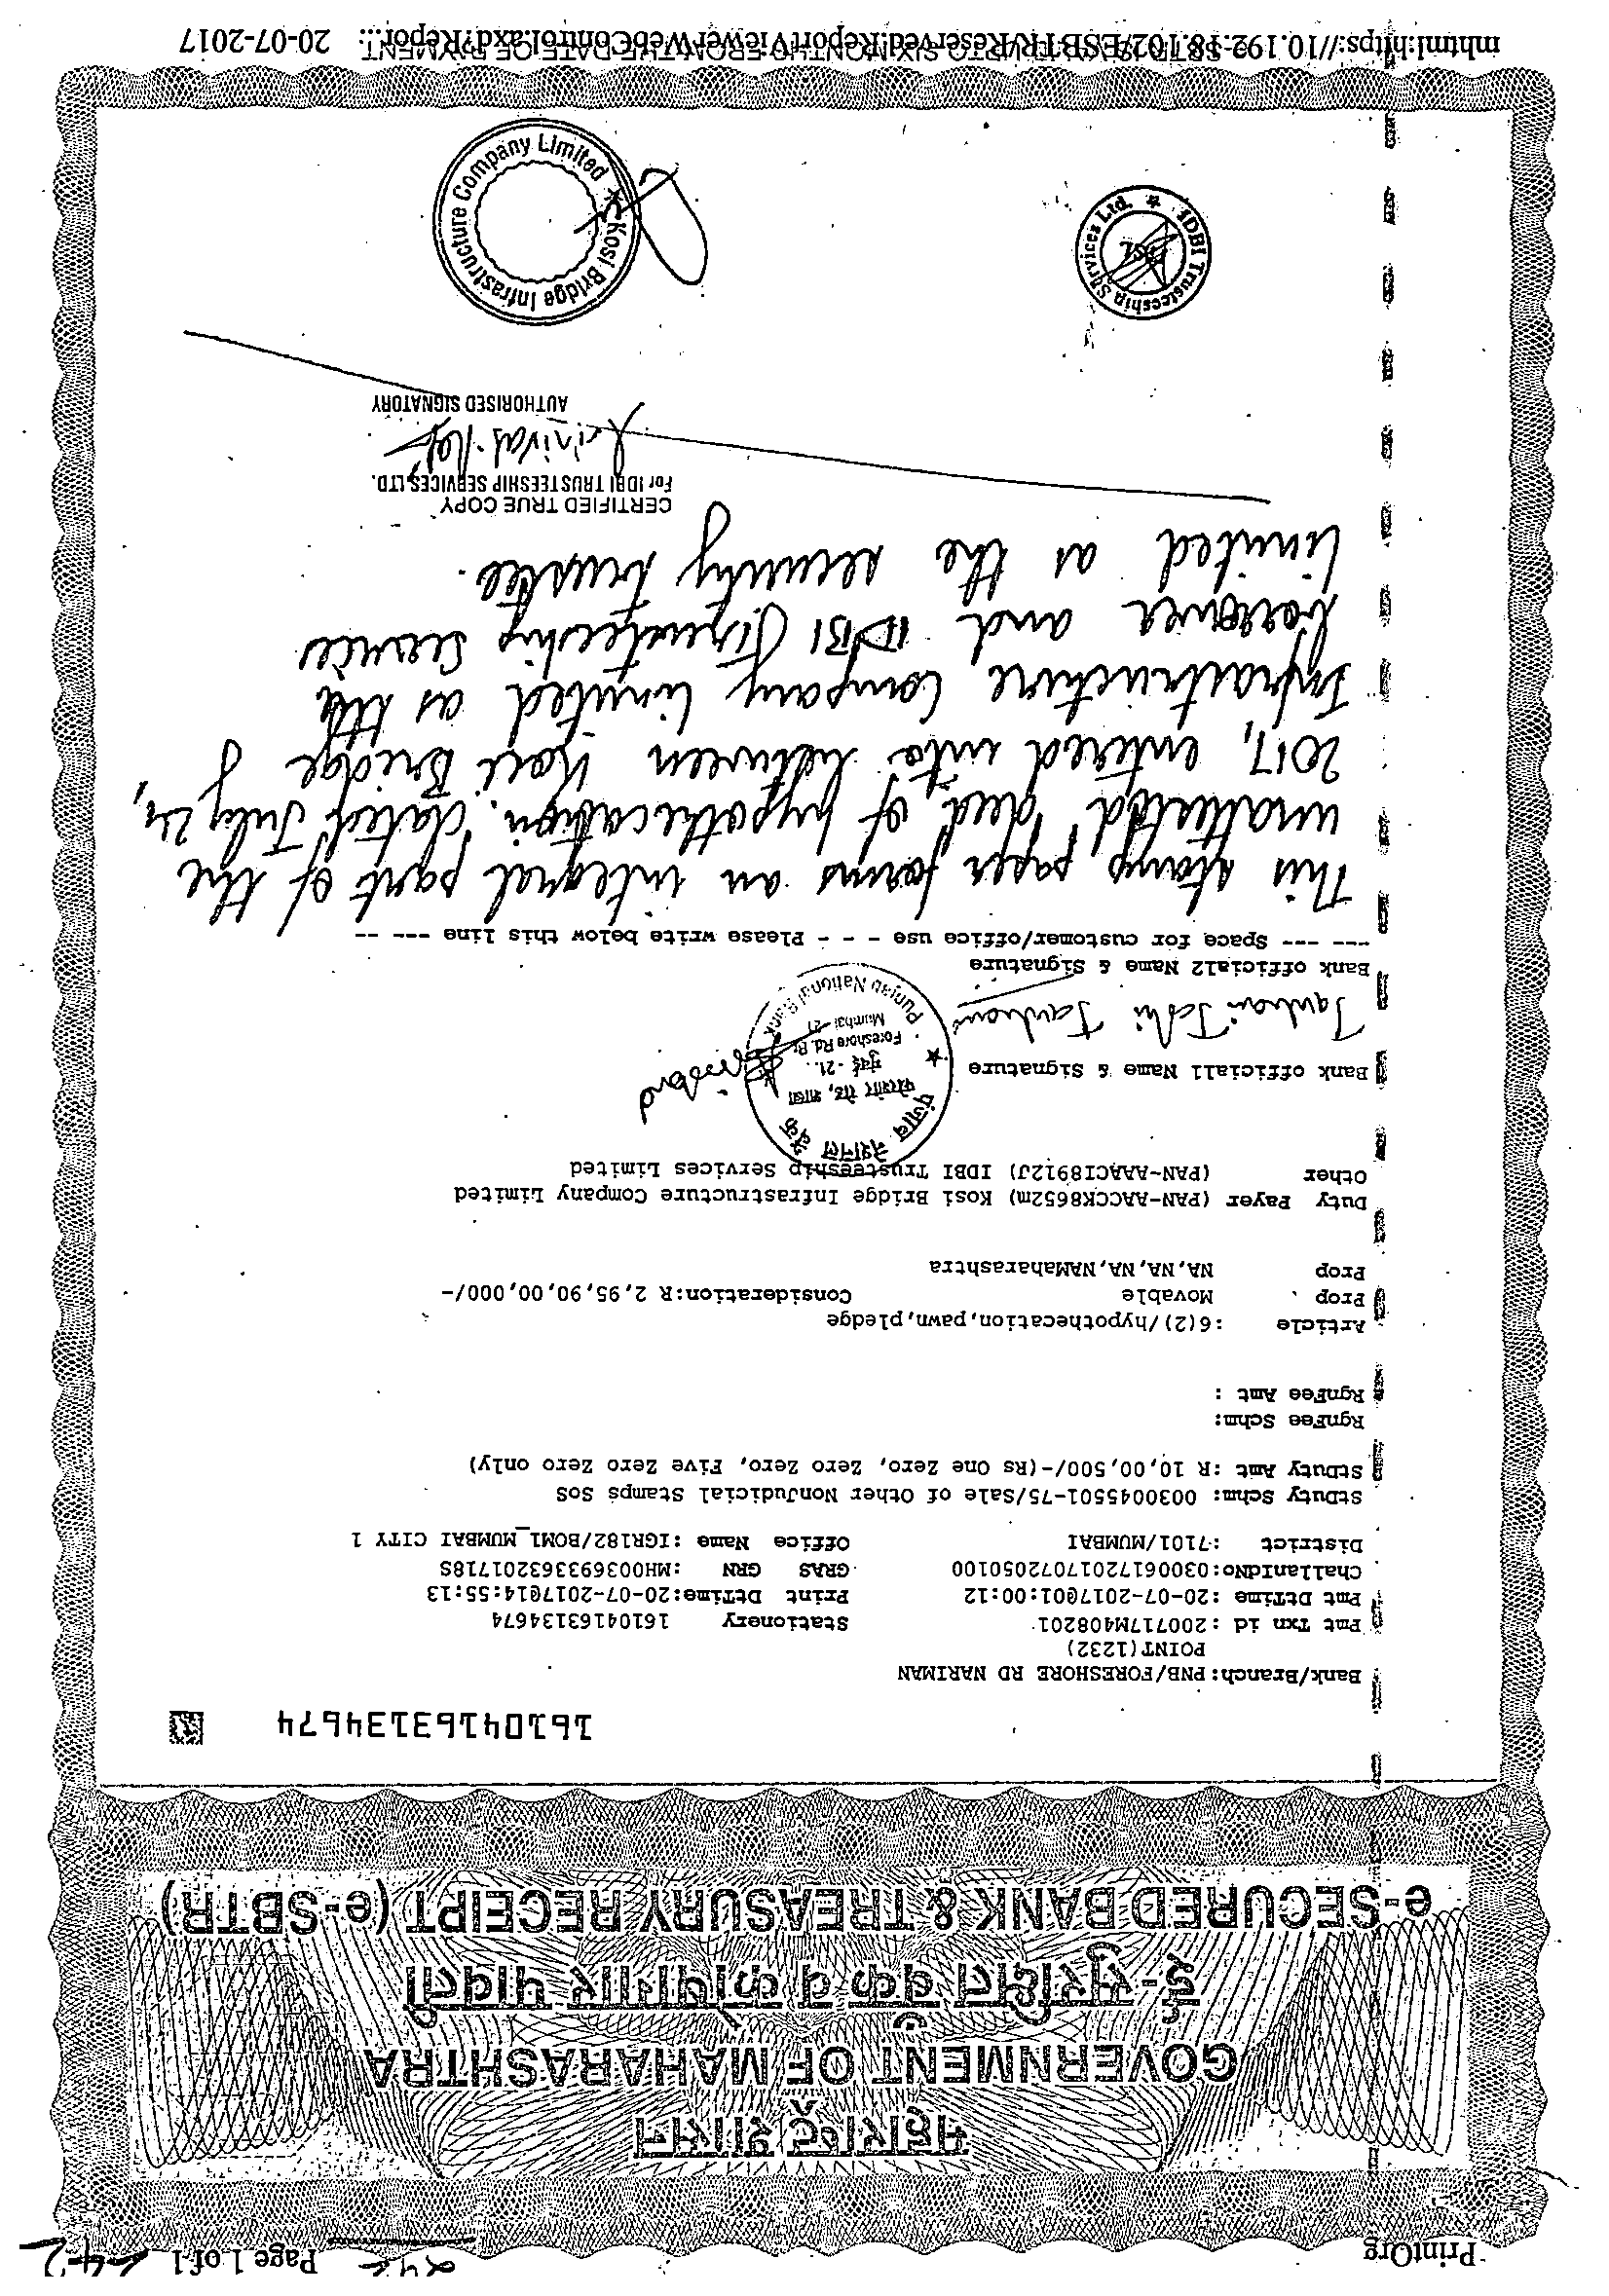 PrintOrg Page 1 of 1
महाराष्ट्र शासन
GOVERNMENT OF MAHARASHTRA
ई-सुरक्षित बँक व कोषागार पावती
e-SECURED BANK & TREASURY RECEIPT (e-SBTR)
16104163134674
Bank/Branch: PNB/FORESHORE RD NARIMAN
POINT(1232)
Pmt Txn id : 200717M408201 Stationery 16104163134674
Pmt DtTime : 20-07-2017@01:00:12 Print DtTime:20-07-2017@14:55:13
ChallanIdNo: 03006172017072050100 GRAS GRN :MH003693363201718S
District :7101/MUMBAI Office Name :IGR182/BOM1_MUMBAI CITY 1
StDuty Schm: 0030045501-75/Sale of Other NonJudicial Stamps SoS
StDuty Amt :R 10,00,500/-(Rs One Zero, Zero Zero, Five Zero Zero only)
RgnFee Schm:
RgnFee Amt :
Article :6(2)/hypothecation,pawn,pledge
Prop Movable Consideration:R 2,95,90,00,000/-
Prop NA,NA,NA,NAMaharashtra
Duty Payer (PAN-AACCK8652m) Kosi Bridge Infrastructure Company Limited
Other (PAN-AAACI8912J) IDBI Trusteeship Services Limited
पंजाब नैशनल बैंक
फोरशोर रोड, शाखा
मुंबई -21.
Foreshore Rd. Br
Mumbai-21
Punjab National Bank
Bank official1 Name & Signature
Bank official2 Name & Signature
--- --- Space for customer/office use - - - Please write below this line --- --
This stamp paper forms an integral part of the
unattested deed of hypothecation dated July 24,
2017, entered into between Kosi Bridge
Infrastructure Company Limited as the
borrower and IDBI Trusteeship Services
Limited as the security trustee.
CERTIFIED TRUE COPY
For IDBI TRUSTEESHIP SERVICES LTD.
AUTHORISED SIGNATORY
IDBI Trusteeship Services Ltd.
Kosi Bridge Infrastructure Company Limited
20-07-2017